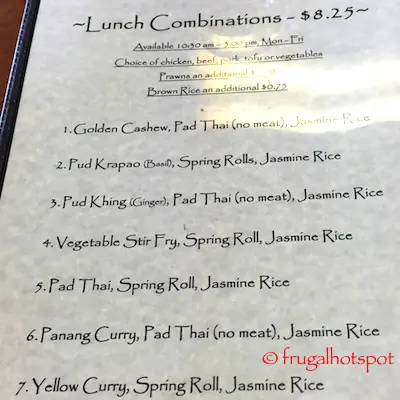 ~Lunch Combinations - $8.25~
Available 10:30 am - 3:00 pm, Mon - Fri
Choice of chicken, beef, pork, tofu or vegetables
Prawns an additional $
Brown Rice an additional $0.75
1. Golden Cashew, Pad Thai (no meat), Jasmine Rice
2. Pud Krapao (Basil), Spring Rolls, Jasmine Rice
3. Pud Khing (Ginger), Pad Thai (no meat), Jasmine Rice
4. Vegetable Stir Fry, Spring Roll, Jasmine Rice
5. Pad Thai, Spring Roll, Jasmine Rice
6. Panang Curry, Pad Thai (no meat), Jasmine Rice
© frugalhotspot
7. Yellow Curry, Spring Roll, Jasmine Rice